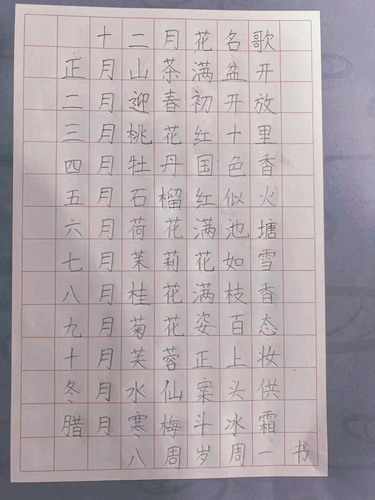 十二月花名歌
正月山茶满盆开
二月迎春初开放
三月桃花红十里
四月牡丹国色香
五月石榴红似火
六月荷花满池塘
七月茉莉花如雪
八月桂花满枝香
九月菊花姿百态
十月芙蓉正上妆
冬月水仙案头供
腊月寒梅斗冰霜
八周岁周一书